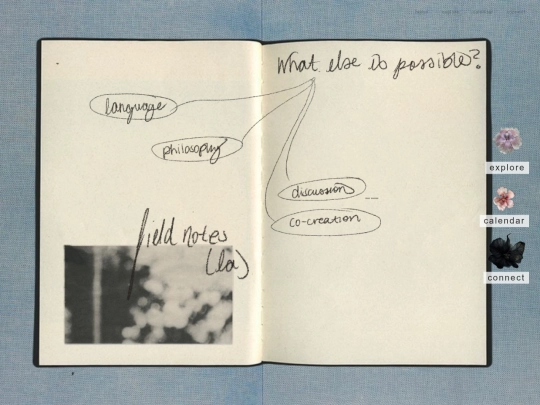 What else is possible?
language
philosophy
discussion
co-creation
field notes
(la)
explore
calendar
connect